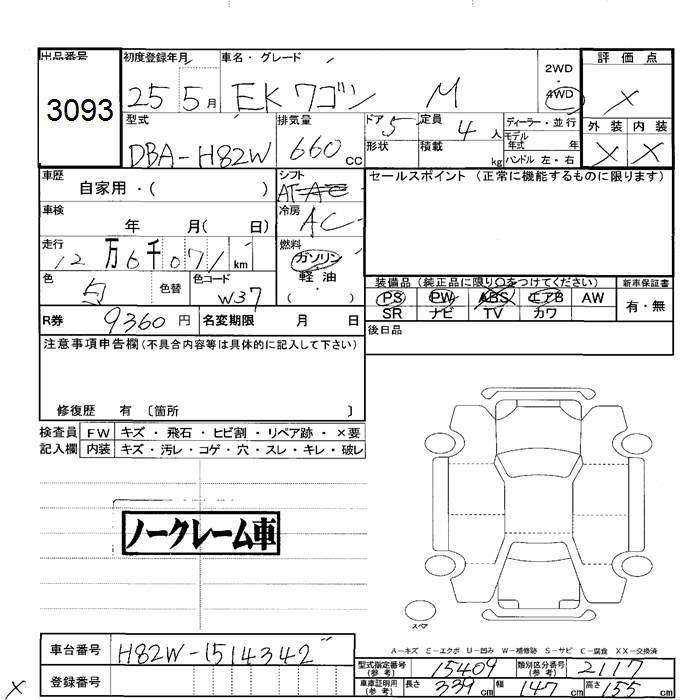 出品番号 3093
初度登録年月 25 5月
車名・グレード EKワゴン M
2WD・4WD
評価点 X
外装 内装
X X
型式 DBA-H82W
排気量 660cc
ドア 5 形状
定員 4人 積載 kg
ディーラー・並行
モデル年式 年
ハンドル 左・右
車歴 自家用・( )
シフト AT AC
セールスポイント (正常に機能するものに限ります)
車検 年 月( 日)
冷房 AC
走行 12万6千071km
燃料 ガソリン・軽油・( )
色 白 色替 色コード W37
装備品 (純正品に限り○をつけてください) 新車保証書
PS PW ABS エアB AW 有・無
SR ナビ TV カワ
R券 9360円 名変期限 月 日
後日品
注意事項申告欄(不具合内容等は具体的に記入して下さい)
修復歴 有 〔箇所 〕
検査員 FW キズ・飛石・ヒビ割・リペア跡・×要
記入欄 内装 キズ・汚レ・コゲ・穴・スレ・キレ・破レ
ノークレーム車
スペア
A-キズ E-エクボ U-凹み W-補修跡 S-サビ C-腐食 XX-交換済
車台番号 H82W-1514342
登録番号
型式指定番号(参考) 15409 類別区分番号(参考) 2117
車庫証明用(参考) 長さ 339cm 幅 147cm 高さ 155cm
X